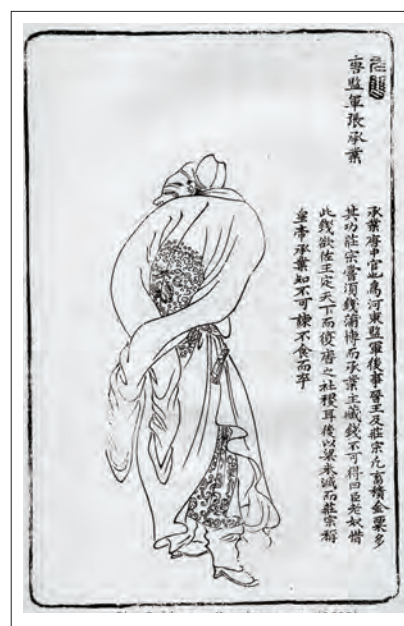 唐監軍張承業
承業唐中官也爲河東監軍後事晉王及莊宗凡畜積金粟多
其功莊宗嘗須錢蒲博而承業主藏錢不可得曰臣老奴惜
此錢欲佐王定天下而復唐之社稷耳後以梁未滅而莊宗稱
皇帝承業知不可諫不食而卒